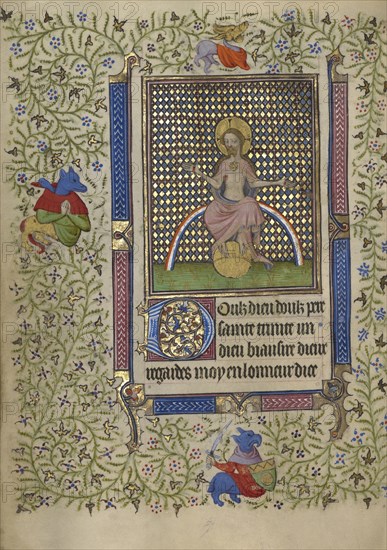 Doulz dieu doulz per
saincte trinite un
dieu biausire dieux
regardes moy en lonneur dice